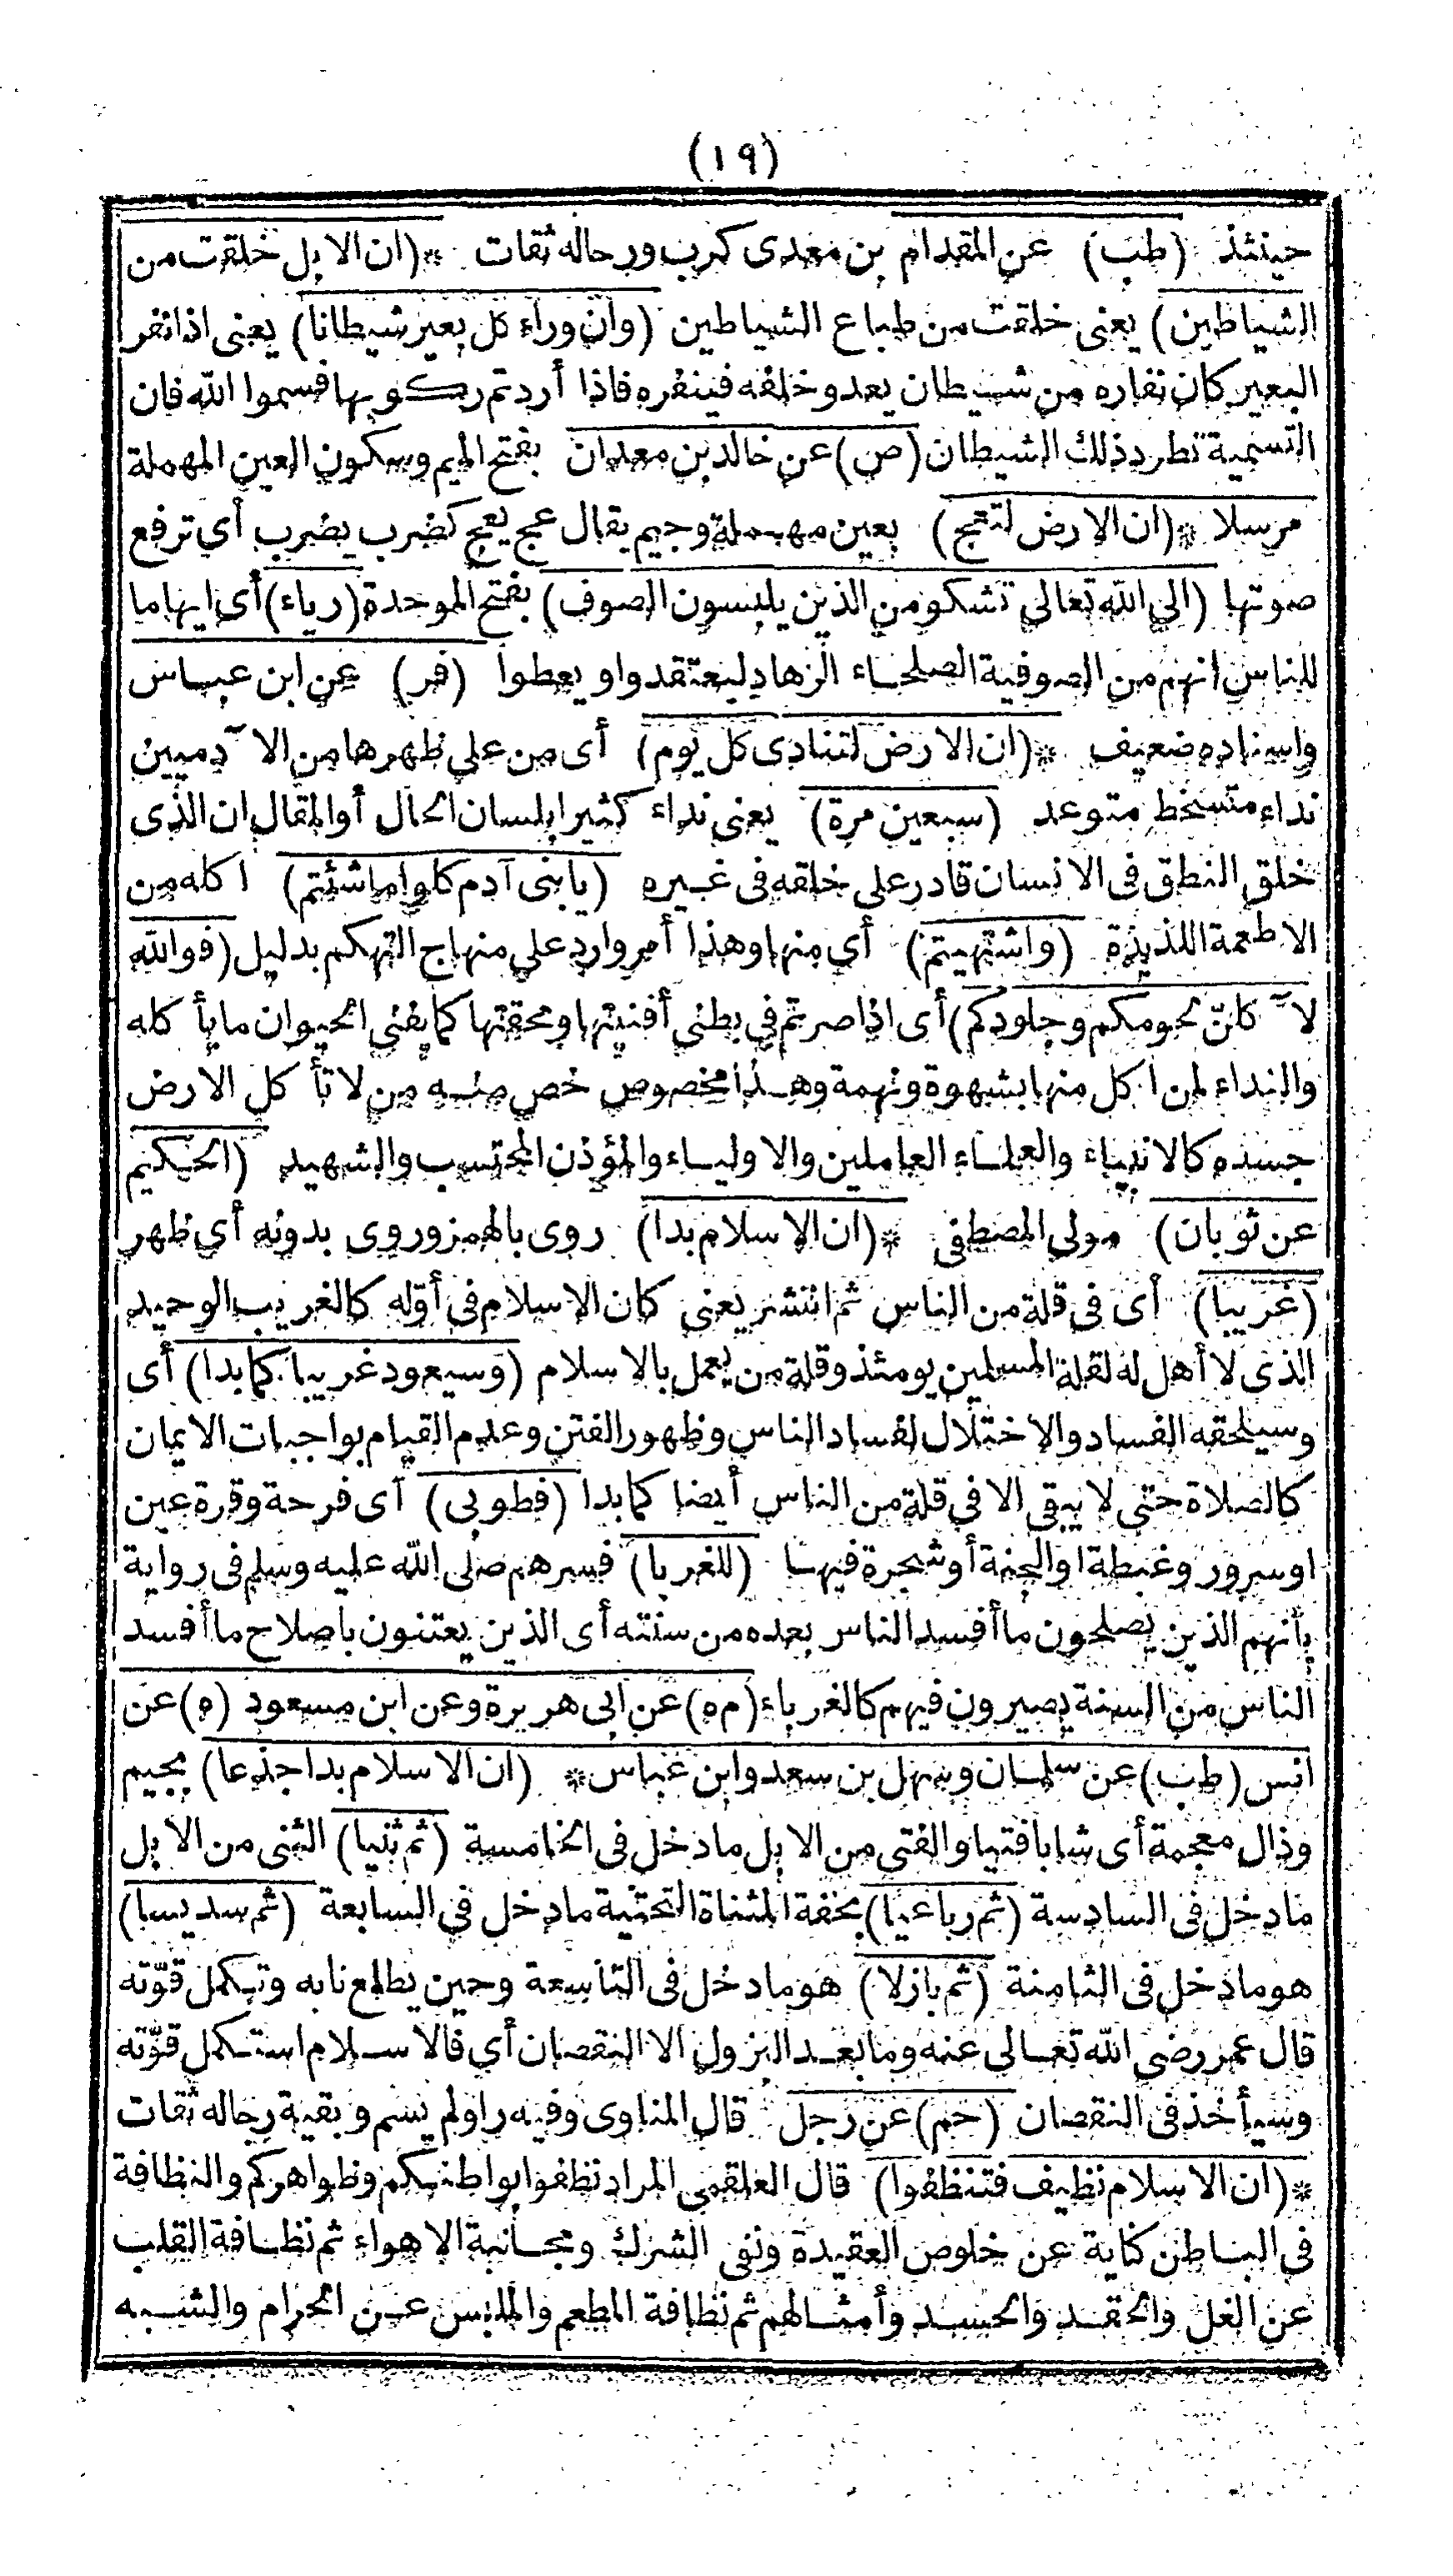 (١٩)
حينئذ (طب) عن المقدام بن معدى كرب ورجاله ثقات *(ان الابل خلقت من
الشياطين) يعنى خلقت من طباع الشياطين (وان وراء كل بعير شيطانا) يعنى اذا نفر
البعير كان نفاره من شيطان يعدو خلفه فينفره فاذا أردتم ركوبها فسموا الله فان
التسمية تطرد ذلك الشيطان (ص) عن خالد بن معدان بفتح الميم وسكون العين المهملة
مرسلا *(ان الارض لتعج) بعين مهملة وجيم يقال عج يعج كضرب يضرب أى ترفع
صوتها (الى الله تعالى تشكو من الذين يلبسون الصوف) بفتح الموحدة (رياء) أى ايهاما
للناس انهم من الصوفية الصلحاء الزهاد ليعتقدوا ويعطوا (فر) عن ابن عباس
واسناده ضعيف *(ان الارض لتنادى كل يوم) أى من على ظهرها من الآدميين
نداء متسخط متوعد (سبعين مرة) يعنى نداء كثيرا بلسان الحال أو المقال ان الذى
خلق النطق فى الانسان قادر على خلقه فى غيره (يابنى آدم كلوا ما شئتم) اكله من
الاطعمة اللذيذة (واشتهيتم) أى منها وهذا أمر وارد على منهاج التهكم بدليل (فوالله
لآكلنّ لحومكم وجلودكم) أى اذا صرتم فى بطنى أفنيتها ومحقتها كما يفنى الحيوان ما يأكله
والنداء لمن اكل منها بشهوة ونهمة وهذا مخصوص خص منه من لا تأكل الارض
جسده كالانبياء والعلماء العاملين والاولياء والمؤذن المحتسب والشهيد (الحكيم
عن ثوبان) مولى المصطفى *(ان الاسلام بدا) روى بالهمز وروى بدونه أى ظهر
(غريبا) أى فى قلة من الناس ثم انتشر يعنى كان الاسلام فى أوّله كالغريب الوحيد
الذى لا أهل له لقلة المسلمين يومئذ وقلة من يعمل بالاسلام (وسيعود غريبا كما بدا) أى
وسيلحقه الفساد والاختلال لفساد الناس وظهور الفتن وعدم القيام بواجبات الايمان
كالصلاة حتى لا يبقى الا فى قلة من الناس أيضا كما بدا (فطوبى) أى فرحة وقرة عين
اوسرور وغبطة او الجنة أو شجرة فيها (للغربا) فسرهم صلى الله عليه وسلم فى رواية
بأنهم الذين يصلحون ما أفسد الناس بعده من سنته أى الذين يعتنون باصلاح ما أفسد
الناس من السنة يصيرون فيهم كالغرباء (م ه) عن ابى هريرة وعن ابن مسعود (ه) عن
انس (طب) عن سلمان وسهل بن سعد وابن عباس * (ان الاسلام بدا جذعا) بجيم
وذال معجمة أى شابا فتيا والفتى من الابل ما دخل فى الخامسة (ثم ثنيا) الثنى من الابل
ما دخل فى السادسة (ثم رباعيا) بخفة المثناة التحتية ما دخل فى السابعة (ثم سديسا)
هو ما دخل فى الثامنة (ثم بازلا) هو ما دخل فى التاسعة وحين يطلع نابه وتكمل قوّته
قال عمر رضى الله تعالى عنه وما بعد البزول الا النقصان أى فالاسلام استكمل قوّته
وسيأخذ فى النقصان (حم) عن رجل قال المناوى وفيه راو لم يسم وبقية رجاله ثقات
*(ان الاسلام نظيف فتنظفوا) قال العلقمى المراد نظفوا بواطنكم وظواهركم والنظافة
فى الباطن كناية عن خلوص العقيدة ونفى الشرك ومجانبة الاهواء ثم نظافة القلب
عن الغل والحقد والحسد وأمثالهم ثم نظافة المطعم والملبس عن الحرام والشبه